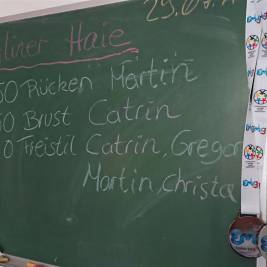 29.07.
liner Haie
50 Rücken Martin
50 Brust Catrin
0 Freistil Catrin, Gregor
Martin, Christa